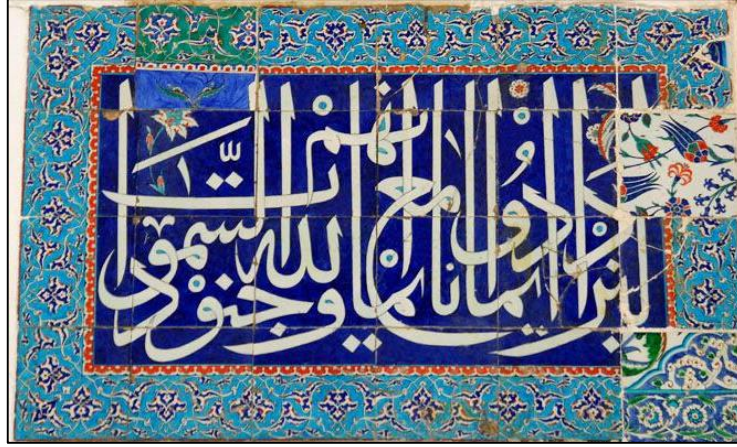 ليزدادوا ايمانا مع ايمانهم ولله جنود السموات